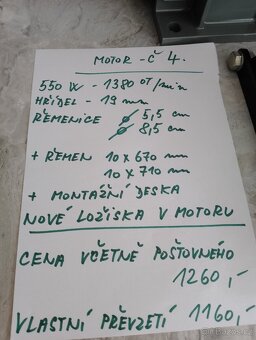 MOTOR - Č 4.
550 W - 1380 OT/min
HŘÍDEL - 19 mm
ŘEMENICE ⌀ 5,5 cm
⌀ 8,5 cm
+ ŘEMEN 10 x 670 mm
10 x 710 mm
+ MONTAŽNÍ DESKA
NOVÉ LOŽISKA V MOTORU
CENA VČETNĚ POŠTOVNÉHO
1260,-
VLASTNÍ PŘEVZETÍ 1160,-